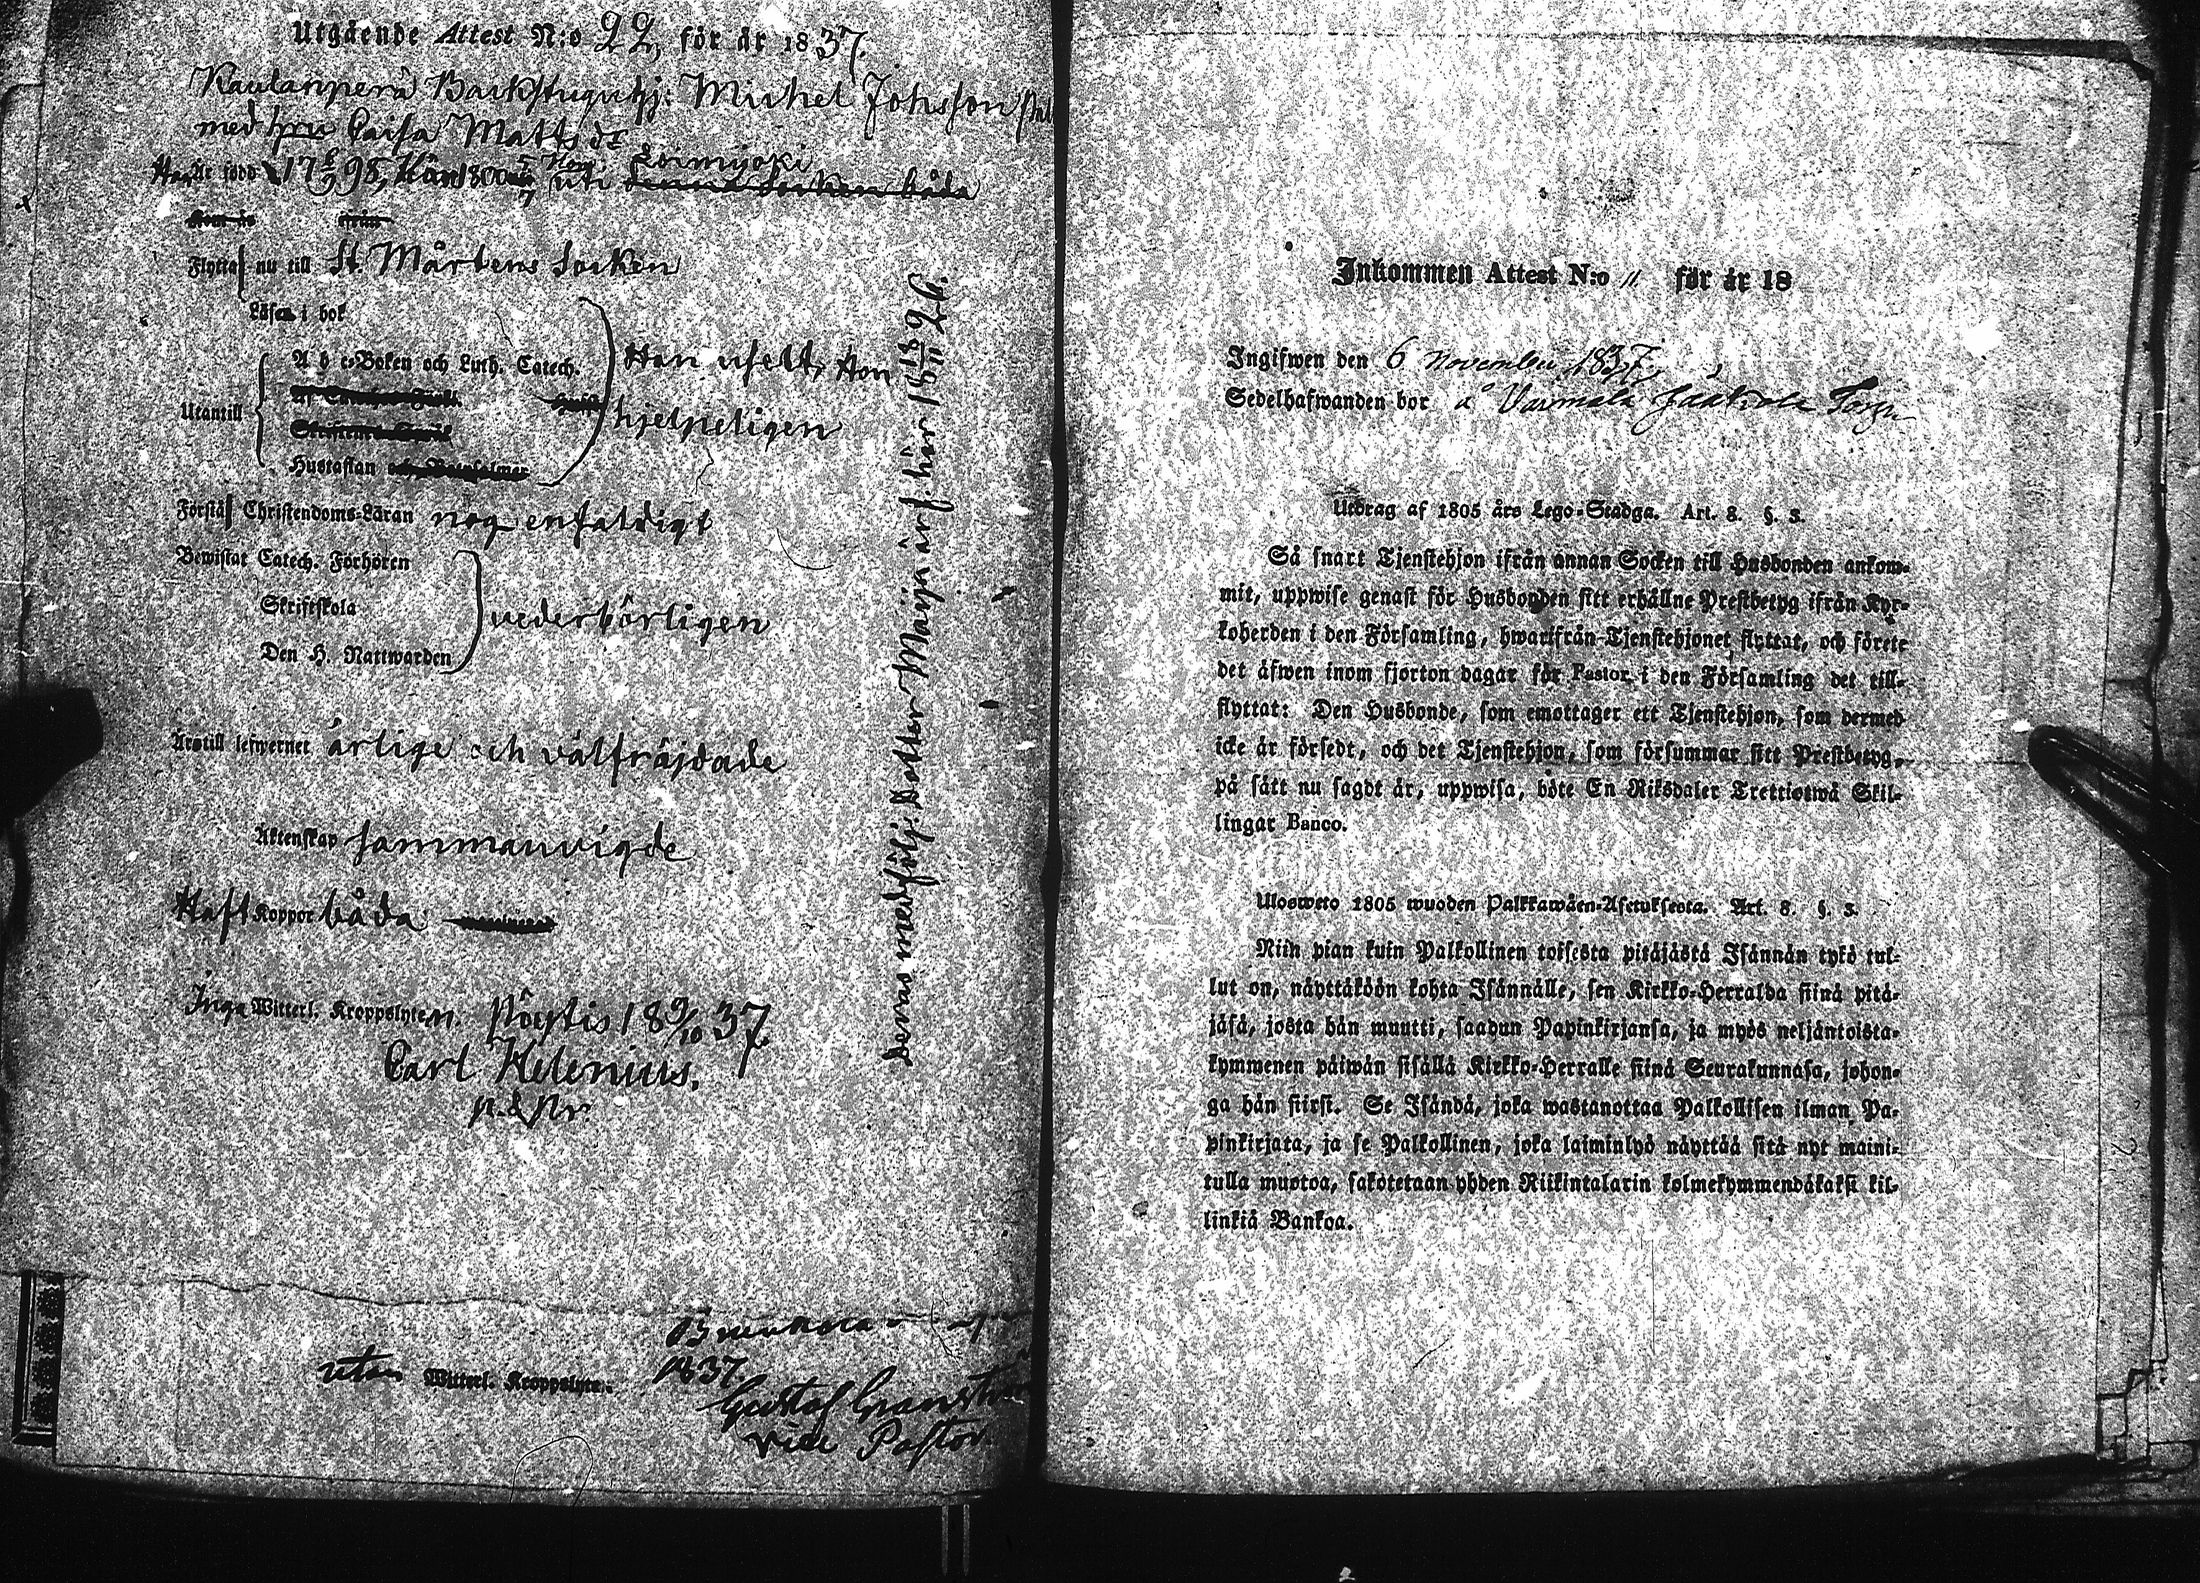 Utgående Attest N:o 22, för år 1837.
Kaulanperä Backstuguhj: Michel Johsson
med hru Caisa Mattsdr
Han Är född 17 95, Hon 1800 Hon uti Loimijoki denna Socken båda
Kom år från
Flytta nu till St. Mårtens Socken
Läsa i bok
A b c-Boken och Luth. Catech.
Han uselt, Hon
hjelpeligen
Utantill
Hustaflan och
Förstå Christendoms-Läran nog enfaldigt
Bewistat Catech. Förhören
Skriftskola
vederbörligen
Den H. Nattwarden
Äro till lefwernet ärlige och välfräjdade
Äktenskap sammanvigde
Haft Koppor båda
Inga Witterl. Kroppslyten. Pöytis 18 9/10 37.
Carl Helenius.
Deras medfölj: Dotter Marja är f. här 18 18/11 26.
1837
utan Witterl. Kroppslyte.
Gustaf
vice Pastor.
Inkommen Attest N:o 11 för år 18
Ingifwen den 6 November 1837.
Sedelhafwanden bor å Varmala Jaakola Torp
Utdrag af 1805 års Lego-Stadga. Art. 8. §. 3.
Så snart Tjenstehjon ifrån annan Socken till Husbonden ankom-
mit, uppwise genast för Husbonden sitt erhållne Prestbetyg ifrån Kyr-
koherden i den Församling, hwarifrån Tjenstehjonet flyttat, och förete
det äfwen inom fjorton dagar för Pastor i den Församling det till-
flyttat: Den Husbonde, som emottager ett Tjenstehjon, som dermed
icke är försedt, och det Tjenstehjon, som försummar sitt Prestbetyg,
på sätt nu sagdt är, uppwisa, böte En Riksdaler Trettiotwå Skil-
lingar Banco.
Ulosweto 1805 wuoden Palkkawäen-Asetuksesta. Art. 8. §. 3.
Niin pian kuin Palkollinen toisesta pitäjästä Isännän tykö tul-
lut on, näyttäköön kohta Isännälle, sen Kirkko-Herralda siinä pitä-
jäsä, josta hän muutti, saadun Papinkirjansa, ja myös neljäntoista-
kymmenen päiwän sisällä Kirkko-Herralle siinä Seurakunnasa, johon-
ga hän siirsi. Se Isändä, joka wastanottaa Palkollisen ilman Pa-
pinkirjata, ja se Palkollinen, joka laiminlyö näyttää sitä nyt maini-
tulla muotoa, sakotetaan yhden Riikintalarin kolmekymmendäkaksi kil-
linkiä Bankoa.